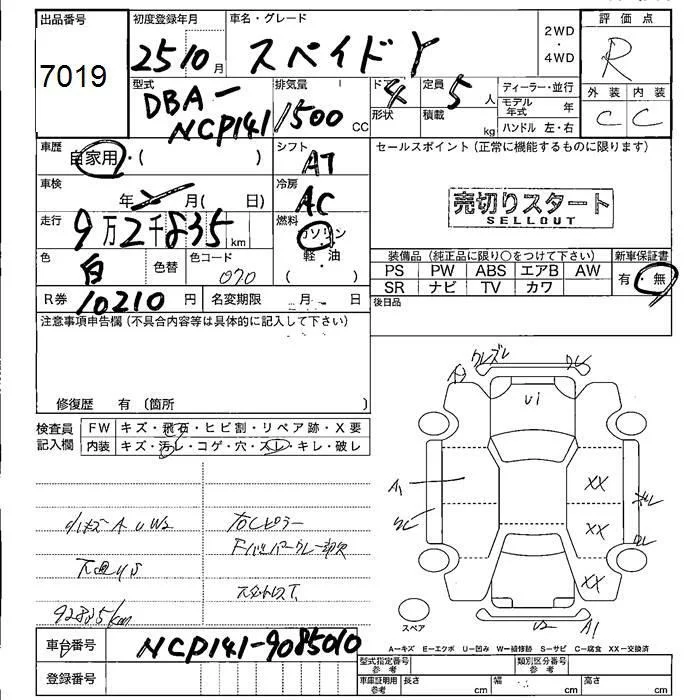 出品番号
7019
初度登録年月
2510月
車名・グレード
スペイドY
2WD
・
4WD
評価点
R
型式
DBA-
NCP141
排気量
1500 CC
ドア
4
形状
定員
5人
積載
kg
ディーラー・並行
モデル年式 年
ハンドル 左・右
外装 内装
C C
車歴
自家用・( )
シフト
AT
セールスポイント(正常に機能するものに限ります)
車検
年 月( 日)
冷房
AC
売切りスタート
SELLOUT
走行
9万2千835km
燃料
ガソリン
軽・油
( ・ )
色
白
色替
色コード
070
装備品(純正品に限り○をつけて下さい)
PS PW ABS エアB AW
SR ナビ TV カワ
新車保証書
有・無
R券 10210円
名変期限 月 日
後日品
注意事項申告欄(不具合内容等は具体的に記入して下さい)
修復歴 有〔箇所 〕
検査員記入欄
FW キズ・飛石・ヒビ割・リペア跡・X要
内装 キズ・汚レ・コゲ・穴・スレ・キレ・破レ
小キズAUW2
右Cピラー
下廻りS
スタットレスT.
92835km
ワレズレ
U1
A1
XX
XX
XX
U2
A1
スペア
A-キズ E-エクボ U-凹み W-補修跡 S-サビ C-腐食 XX-交換済
車台番号
NCP141-9085010
登録番号
型式指定番号 参考
類別区分番号 参考
車庫証明用 参考
長さ cm
幅 cm
高さ cm